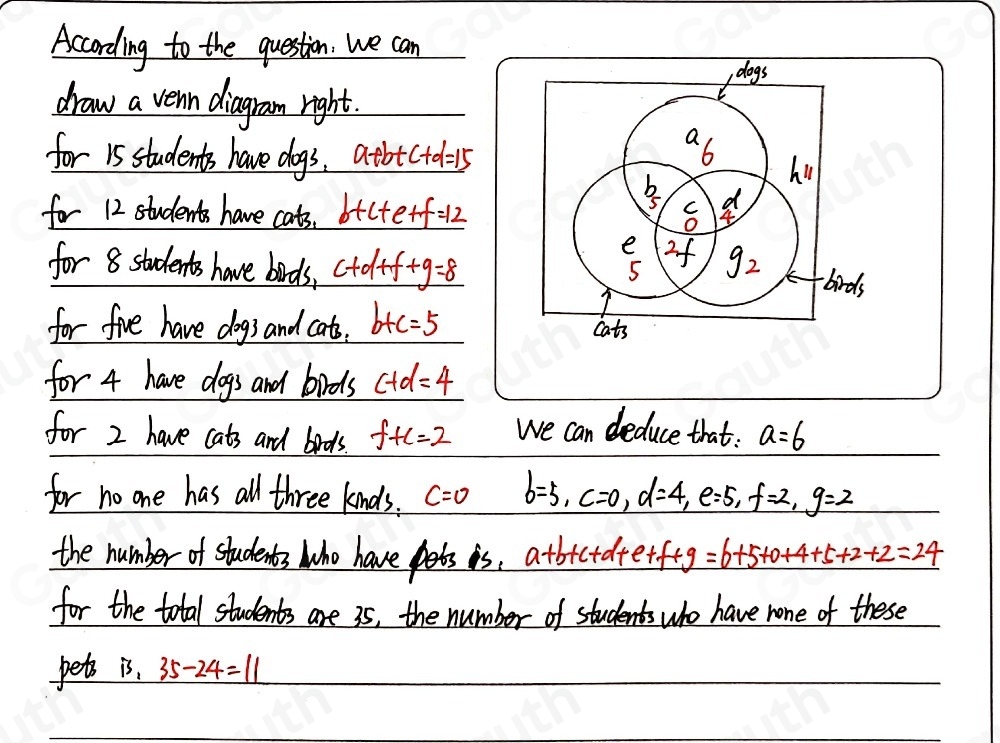 According to the question, we can
draw a venn diagram right.
for 15 students have dogs, a+b+c+d=15
for 12 students have cats, b+c+e+f=12
for 8 students have birds, c+d+f+g=8
for five have dogs and cats, b+c=5
for 4 have dogs and birds c+d=4
for 2 have cats and birds. f+c=2
for no one has all three kinds. c=0
dogs
a 6
h 11
b 5
c 0
d 4
e 5
2 f
g 2
birds
cats
We can deduce that: a=6
b=5, c=0, d=4, e=5, f=2, g=2
the number of students who have pets is, a+b+c+d+e+f+g=6+5+0+4+5+2+2=24
for the total students are 35, the number of students who have none of these
pets is, 35-24=11
Gauth